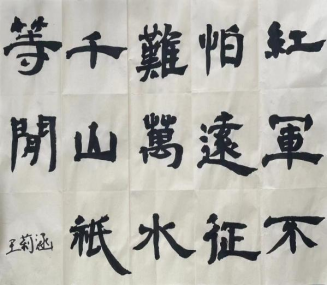 紅軍不
怕遠征
難萬水
千山祇
等閒
王莉涵